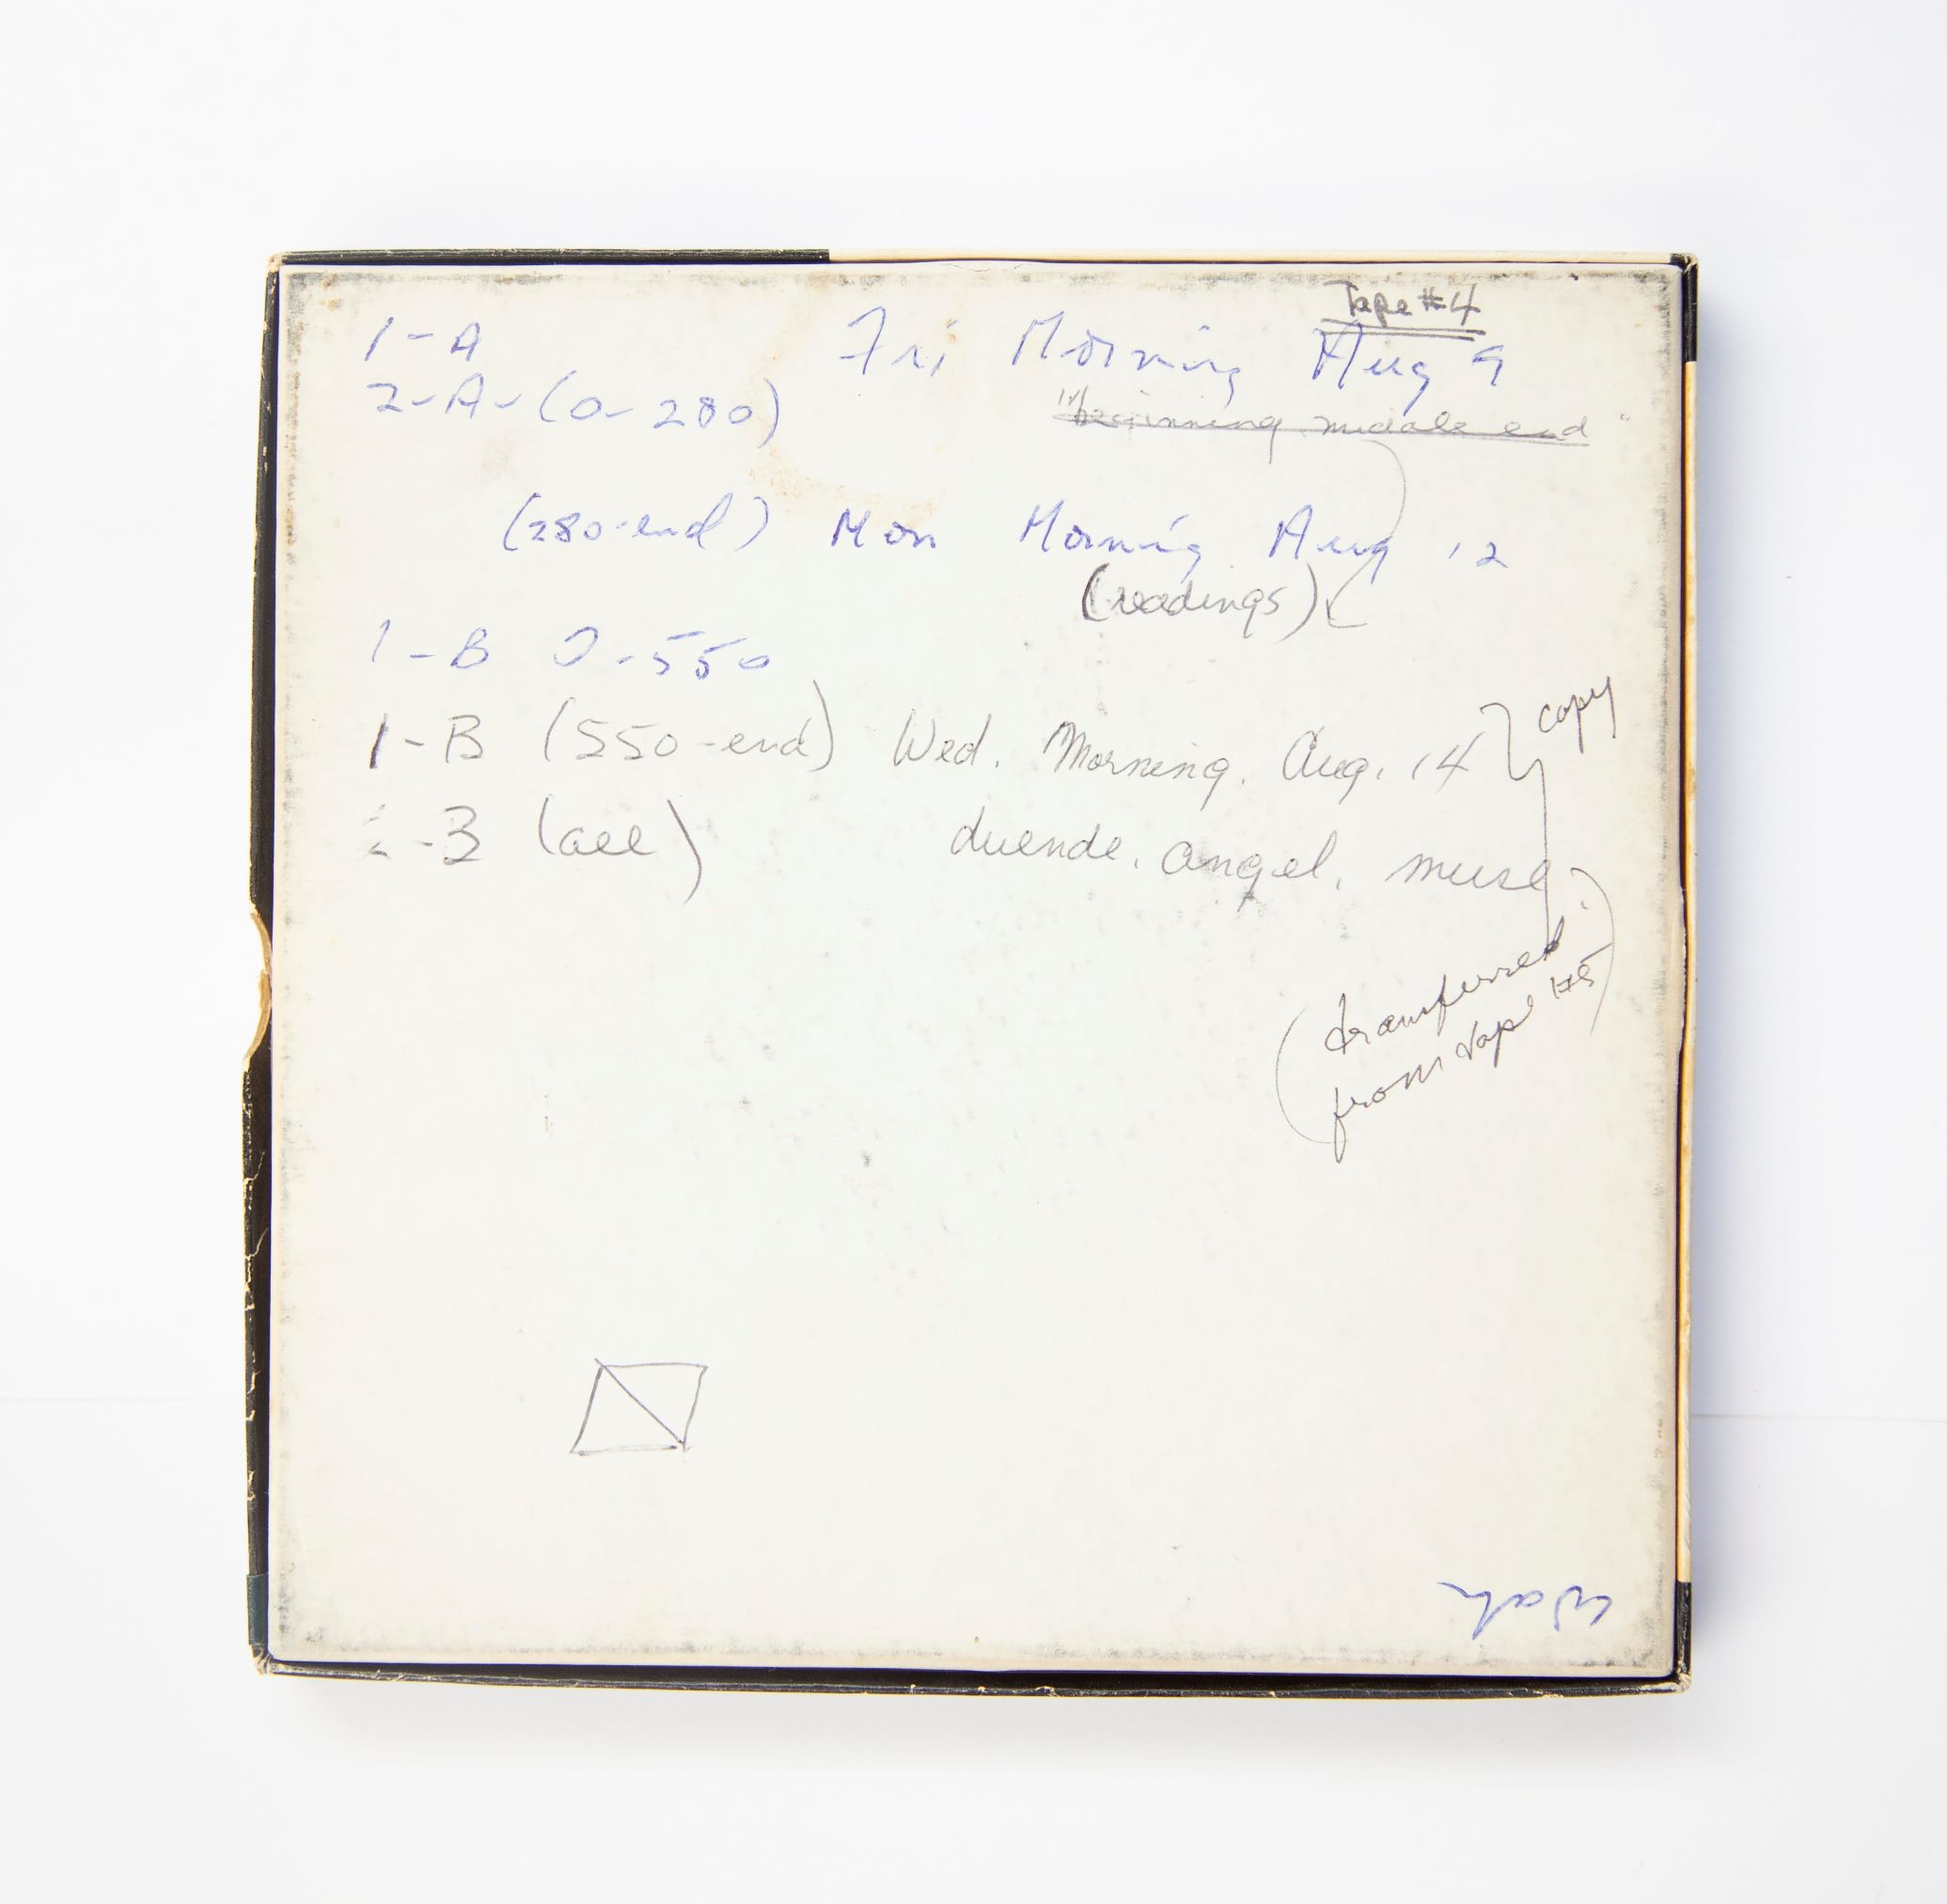 Tape #4
1-A Fri Morning Aug 9
2-A-(0-280) "beginning middle end"
(280-end) Mon Morning Aug 12
(readings)
1-B 0-550
1-B (550-end) Wed. Morning. Aug. 14 } copy
2-B (all) duende. angel. muse.
(transferred
from tape 175)